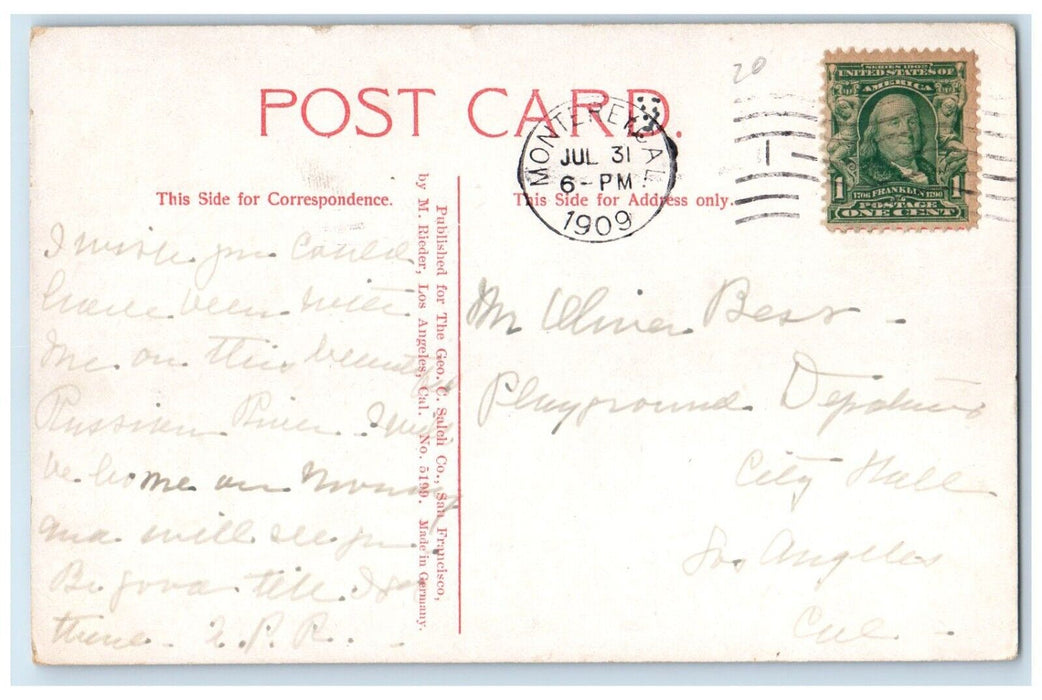 20
POST CARD.
MONTEREY, CAL.
JUL 31
6-PM
1909
1
SERIES 1902
UNITED STATES OF
AMERICA
1706 FRANKLIN 1790
1 POSTAGE 1
ONE CENT
This Side for Correspondence.
This Side for Address only.
I wish you could
have been with
me on this beautiful
Russian River. I will
be home on Monday
and will see you.
Be good till I
there. P. R.
Published for The Geo. C. Salch Co., San Francisco,
by M. Rieder, Los Angeles, Cal. No. 5199. Made in Germany.
Mr Oliver Bess
Playground Department
City Hall
Los Angeles
Cal